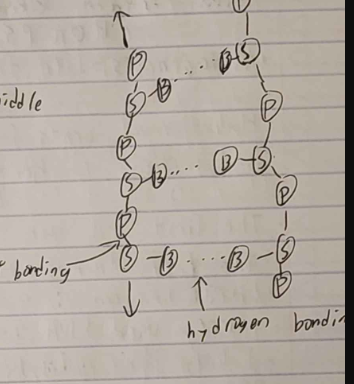 P
P
B S
S B
iddle
P
P
S B B S
P
P
bonding S B B S
P
hydrogen bondin